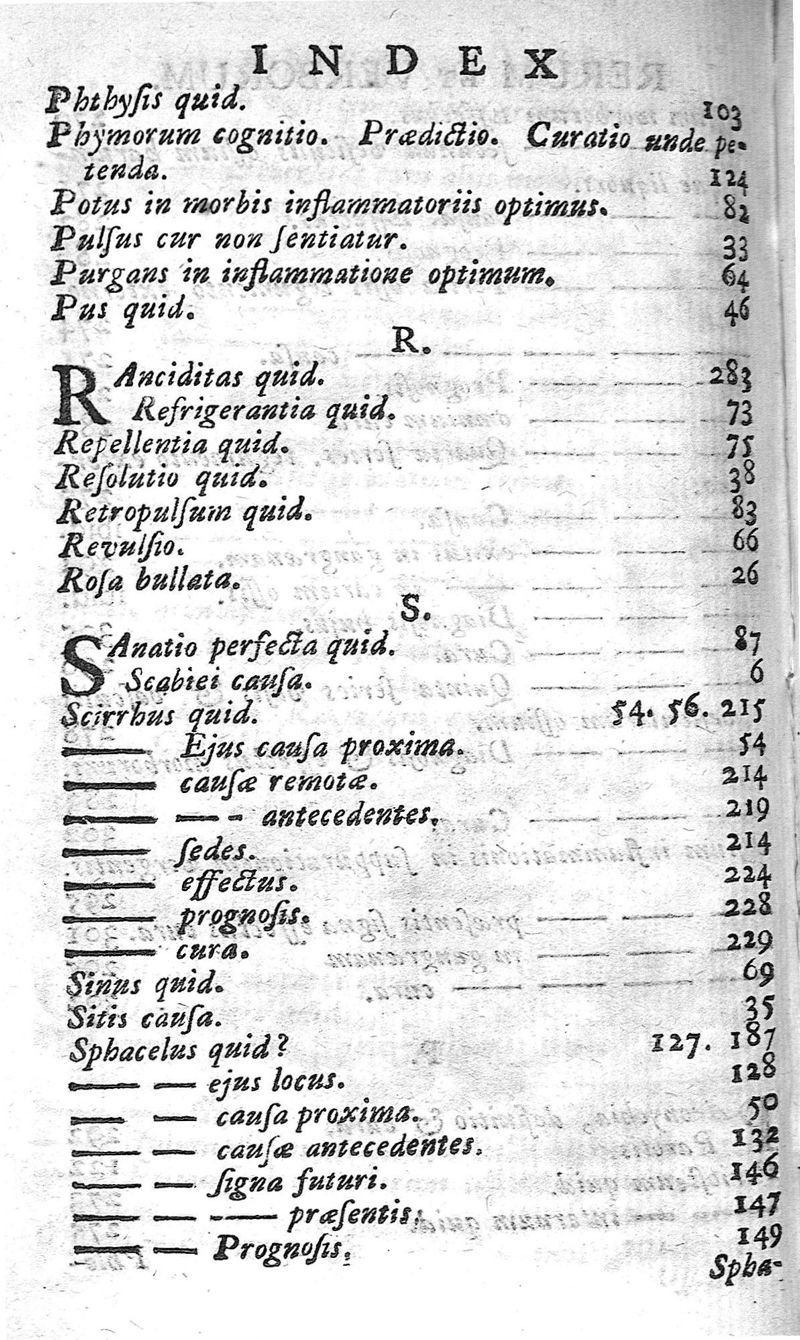 INDEX
Phthyſis quid. 103
Phymorum cognitio. Prædictio. Curatio unde pe-
tenda. 124
Potus in morbis inflammatoriis optimus. 82
Pulſus cur non ſentiatur. 33
Purgans in inflammatione optimum. 64
Pus quid. 46
R.
RAnciditas quid. 283
Refrigerantia quid. 73
Repellentia quid. 75
Reſolutio quid. 38
Retropulſum quid. 83
Revulſio. 66
Roſa bullata. 26
S.
SAnatio perfecta quid. 87
Scabiei cauſa. 6
Scirrhus quid. 54. 56. 215
—— Ejus cauſa proxima. 54
—— cauſæ remotæ. 214
—— — - antecedentes. 219
—— ſedes. 214
—— effectus. 224
—— prognoſis. 228
—— cura. 229
Sinus quid. 69
Sitis cauſa. 35
Sphacelus quid? 127. 187
—— — ejus locus. 128
—— — cauſa proxima. 50
—— — cauſæ antecedentes. 132
—— — ſigna futuri. 146
—— — —— præſentis. 147
—— — Prognoſis. 149
Spha-